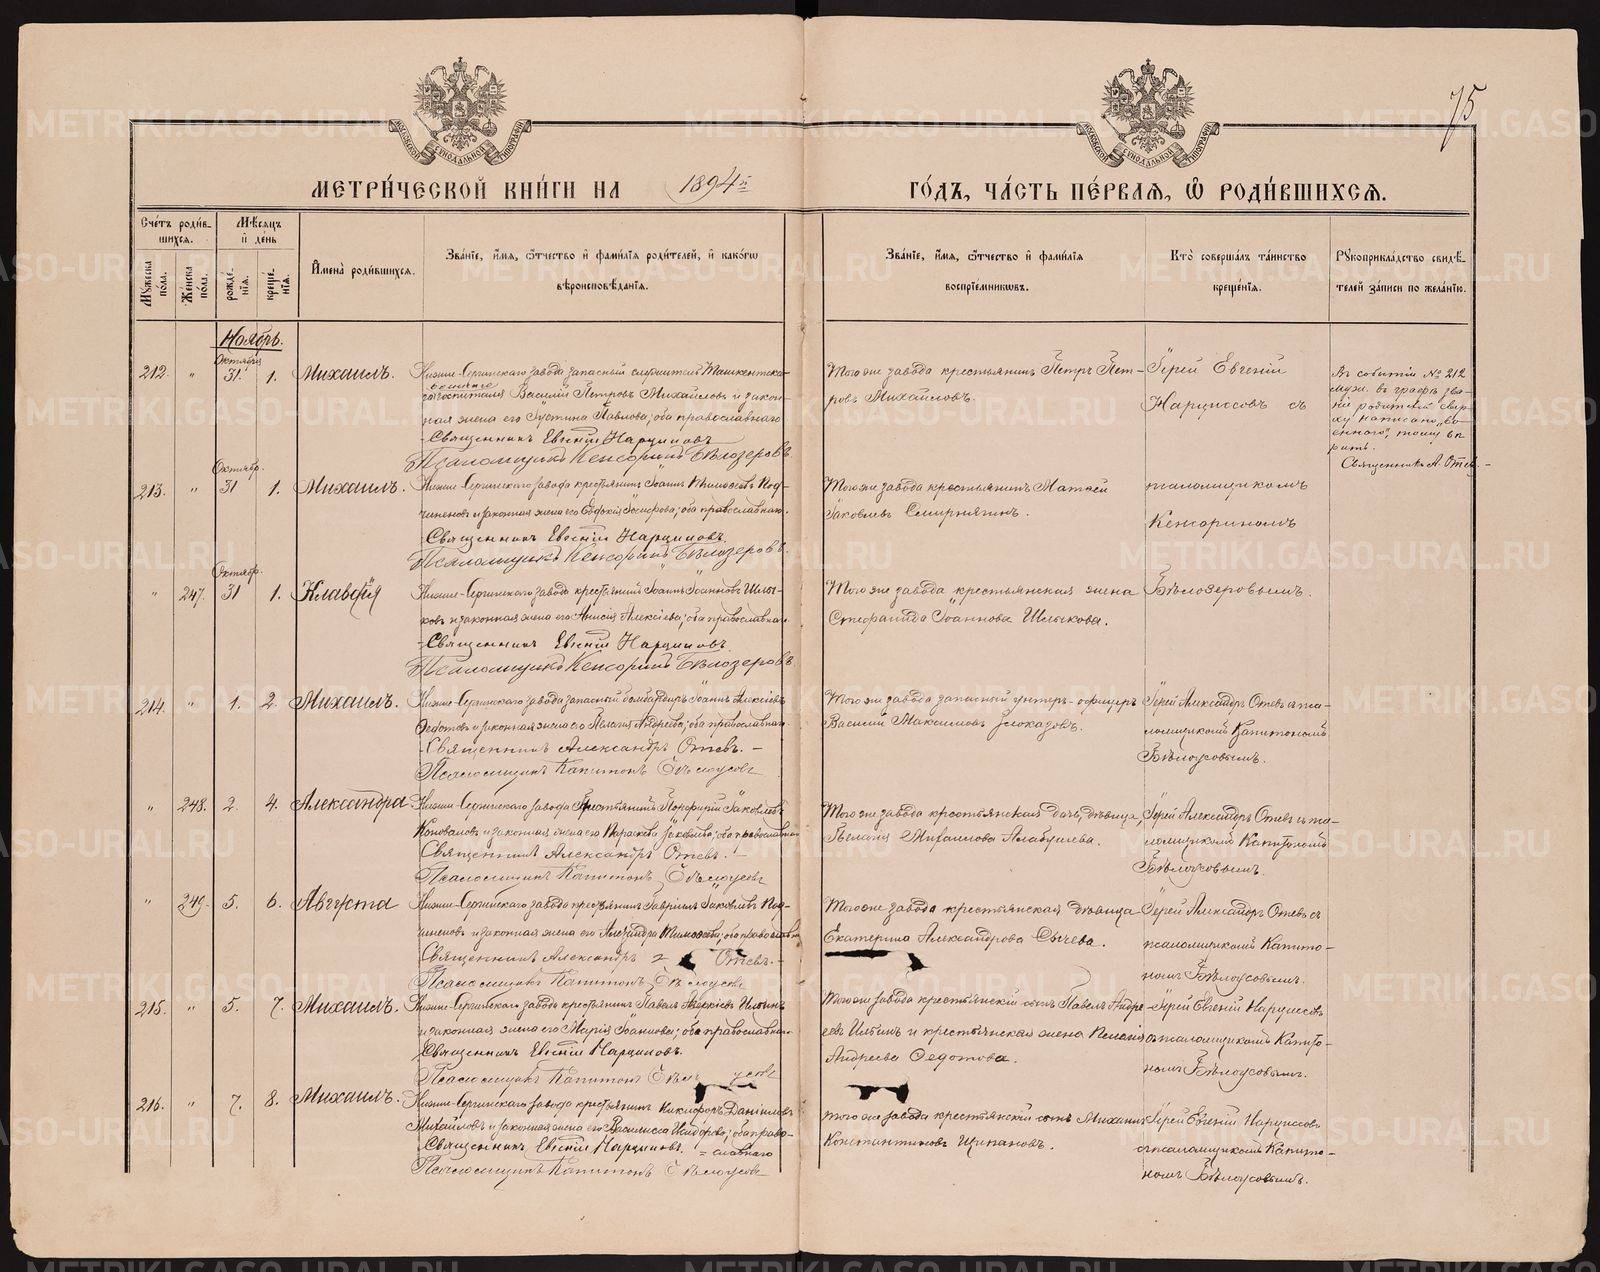 75
МОСКОВСКОЙ СѴНОДАЛЬНОЙ ТИПОГРАФІИ
МОСКОВСКОЙ СѴНОДАЛЬНОЙ ТИПОГРАФІИ
МЕТРИ́ЧЕСКОЙ КНИ́ГИ НА 1894й ГО́ДЪ, ЧА́СТЬ ПЕ́РВАЯ, Ѡ РОДИ́ВШИХСЯ.
Сче́тъ роди́в-
шихся.
Мѣ́сяцъ
и҆ де́нь
Мꙋ́жеска по́ла.
Же́нска по́ла.
рожде́нїѧ.
креще́нїѧ.
И҆мена̀ роди́вшихся.
Зва́нїе, и҆́мя, ѻ҆́тчество и҆ фами́лїя роди́телей, и҆ како́гѡ
вѣроисповѣ́данїя.
Зва́нїе, и҆́мя, ѻ҆́тчество и҆ фами́лїя
воспрїе́мникѡвъ.
Кто̀ соверша́лъ та́инство
креще́нїя.
Рꙋкоприкла́дство свидѣ́-
телей за́писи по жела́нїю.
Ноябрь.
212. " Октября 31. 1. Михаилъ.
Нижне-Сергинскаго завода запасный служитель Ташкентска-
го военнаго госпиталя Василій Петровъ Михайловъ и закон-
ная жена его Іустина Павлова; оба православнаго
Священникъ Евгеній Нарциссовъ
Псаломщикъ Кенсоринъ Бѣлозеровъ.
Того же завода крестьянинъ Петръ Пет-
ровъ Михайловъ.
Іерей Евгеній
Нарциссовъ съ
Въ событіи № 212
муж. въ графѣ зва-
ніе родителей свер-
ху написано „во-
еннаго", тому вѣ-
рить.
Священникъ А. Отевъ.-
213. " Октябр. 31 1. Михаилъ.
Нижне-Сергинскаго завода крестьянинъ Іоаннъ Тимоѳеевъ Под-
чиненовъ и законная жена его Евдокія; оба православнаго.
Священникъ Евгеній Нарциссовъ.
Псаломщикъ Кенсоринъ Бѣлозеровъ.
Того же завода крестьянинъ Матвей
Іаковлевъ Смирнягинъ.
псаломщикомъ
Кенсориномъ
" 247. Октябр. 31 1. Клавдія
Нижне-Сергинскаго завода крестьянинъ Іоаннъ Іоанновъ Шлы-
ковъ и законная жена его Анисія Алексіева; оба православнаго
Священникъ Евгеній Нарциссовъ.
Псаломщикъ Кенсоринъ Бѣлозеровъ.
Того же завода крестьянская жена
Стефанида Іоаннова Шлыкова.
Бѣлозеровымъ.
214. " 1. 2. Михаилъ.
Нижне-Сергинскаго завода запасный бомбардиръ Іоаннъ Алексіевъ
Ѳедотовъ и законная жена его Пелагія Андреева; оба православнаго
Священникъ Александръ Отевъ. -
Псаломщикъ Капитонъ Бѣлоусовъ
Того же завода запасный унтеръ-офицеръ
Василій Максимовъ Злоказовъ.
Іерей Александръ Отевъ съ пса-
ломщикомъ Капитономъ
Бѣлоусовымъ.
" 248. 2. 4. Александра
Нижне-Сергинскаго завода крестьянинъ Порфирій Іаковлевъ
Коноваловъ и законная жена его Параскева Іаковлева; оба православнаго
Священникъ Александръ Отевъ. -
Псаломщикъ Капитонъ Бѣлоусовъ
Того же завода крестьянская дочь, дѣвица,
Пелагія Алабушева.
Іерей Александръ Отевъ съ пса-
ломщикомъ Капитономъ
Бѣлоусовымъ.
" 249. 5. 6. Августа
Нижне-Сергинскаго завода крестьянинъ Гавріилъ Іаковлевъ Под-
чиненовъ и законная жена его Александра Тимоѳеева; оба православнаго
Священникъ Александръ Отевъ. -
Псаломщикъ Капитонъ Бѣлоусовъ
Того же завода крестьянская дѣвица
Екатерина Александрова Сычева.
Іерей Александръ Отевъ съ
псаломщикомъ Капито-
номъ Бѣлоусовымъ.
215. " 5. 7. Михаилъ.
Нижне-Сергинскаго завода крестьянинъ Павелъ Алексіевъ Ильинъ
и законная жена его Марія Іоаннова; оба православнаго
Священникъ Евгеній Нарциссовъ.
Псаломщикъ Капитонъ Бѣл усовъ
Того же завода крестьянскій сынъ Павелъ Андре-
евъ Ильинъ и крестьянская жена
Андреева Ѳедотова.
Іерей Евгеній Нарциссовъ
съ псаломщикомъ Капито-
номъ Бѣлоусовымъ.
216. " 7. 8. Михаилъ.
Нижне-Сергинскаго завода крестьянинъ Никифоръ Даніиловъ
Михайловъ и законная жена его Василисса Исидорова; оба право-
славнаго
Священникъ Евгеній Нарциссовъ.
Псаломщикъ Капитонъ Бѣлоусовъ
Того же завода крестьянскій сынъ Михаилъ
Константиновъ Щипановъ.
Іерей Евгеній Нарциссовъ
съ псаломщикомъ Капито-
номъ Бѣлоусовымъ.
METRIKI.GASO-URAL.RU